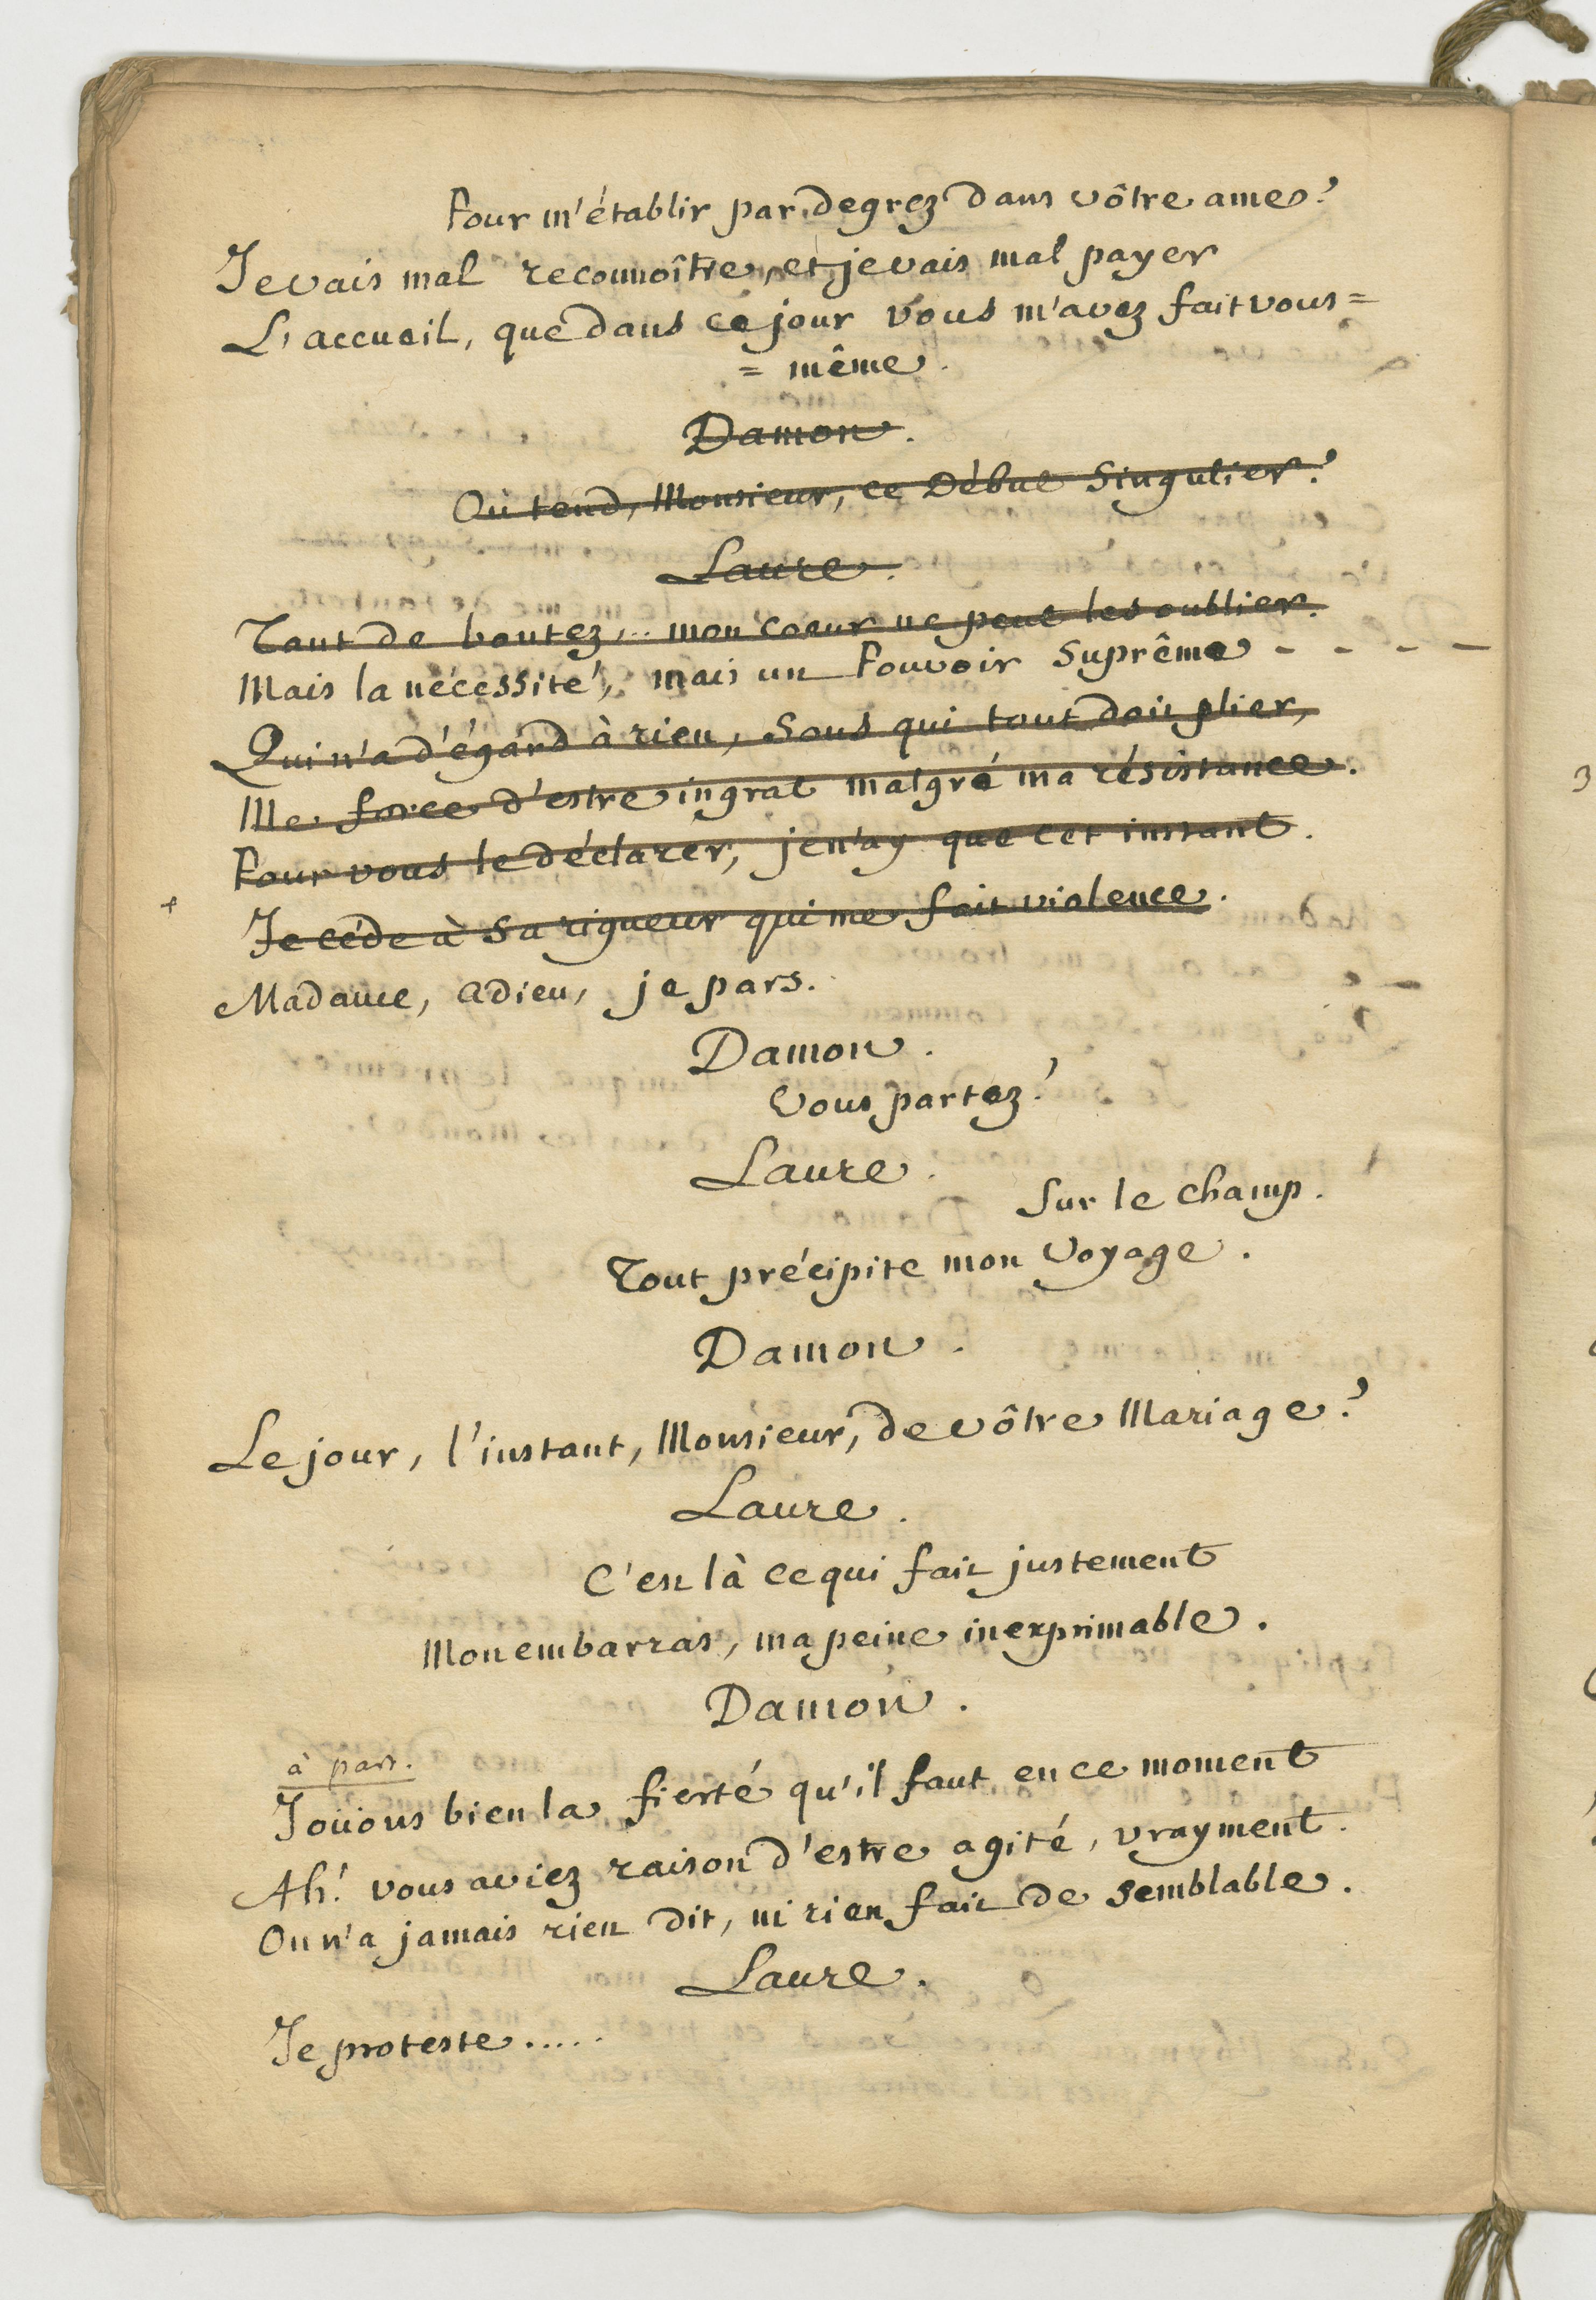 Pour m'établir par degrez dans vôtre ame?
Je vais mal reconnoître, et je vais mal payer
L'accueil, que dans ce jour vous m'avez fait vous=
= même.
Damon.
Où tend, Monsieur, ce Début Singulier?
Laure.
Tant de bontez... mon coeur ne peut les oublier.
Mais la nécessité, mais un Pouvoir Suprême - - - -
Qui n'a d'égard à rien, Sous qui tout doit plier,
Me force d'estre ingrat malgré ma résistance.
Pour vous le déclarer, je n'ay que cet instant.
+ Je céde à Sa rigueur qui me fait violence.
Madame, adieu, je pars.
Damon.
Vous partez!
Laure.
Sur le champ.
Tout précipite mon Voyage.
Damon.
Le jour, l'instant, Monsieur, de vôtre Mariage?
Laure.
C'est là ce qui fait justement
Mon embarras, ma peine inexprimable.
Damon.
à part.
Joüons bien la fierté qu'il faut en ce moment
Ah! vous aviez raison d'estre agité, vrayment.
On n'a jamais rien dit, ni rien fait de semblable.
Laure.
Je proteste.....